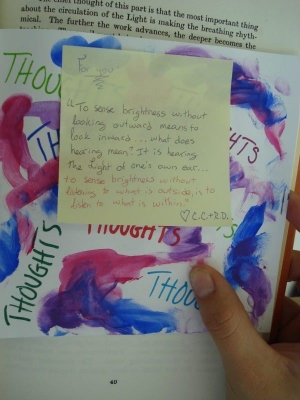 chief thought of this part is that the most important thing
about the circulation of the Light is making the breathing rhyth-
mical. The further the work advances, the deeper becomes the
THOUGHTS
For you
"To sense brightness without
looking outward means to
look inward... what does
hearing mean? It is hearing
the Light of one's own ear...
to sense brightness without
listening to what is outside, is to
listen to what is within."
♡ C.C. + R.D.
THOUGHTS
THOUGHTS
THOUGHTS
THOU
40